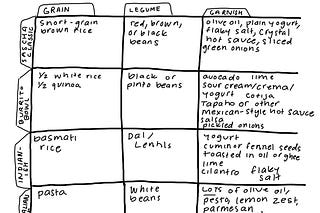 GRAIN
LEGUME
GARNISH
SASCHA
CLASSIC
short-grain
brown rice
red, brown,
or black
beans
olive oil, plain yogurt,
flaky salt, crystal
hot sauce, sliced
green onions
BURRITO
BOWL
½ white rice
½ quinoa
black or
pinto beans
avocado lime
sour cream/crema/
yogurt cotija
Tapatio or other
mexican-style hot sauce
salsa
pickled onions
INDIAN-
ISH
basmati
rice
Dal/
Lentils
yogurt
cumin or fennel seeds
toasted in oil or ghee
lime
cilantro flaky
salt
pasta
white
beans
LOTS of olive oil,
pesto, lemon zest,
parmesan